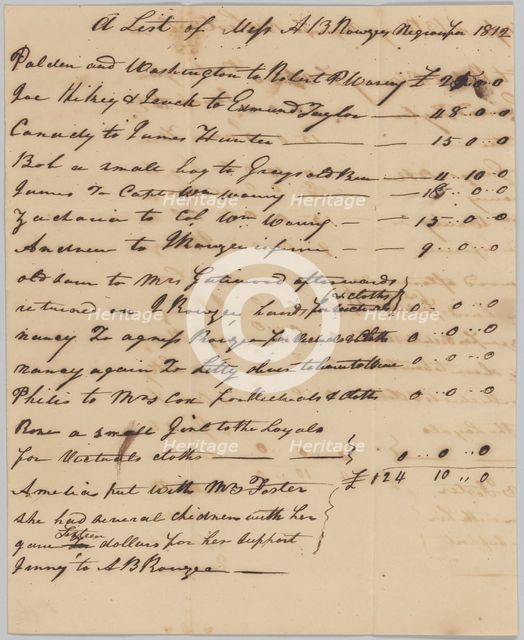 A List of Miss A B Rouzees Negroes for 1812
Palden and Washington to Robert P Waring £ 25,,0..0
Joe Hikey & Leach to Edmund Taylor 48..0..0
Canady to James Hunter 15 0..0
Bob a small boy to 4 10 0
James To Capt Wm Waring 18..0..0
Zacharia to Col Wm Waring 15..0..0
Andrew to 9..0..0
old Sam to Mrs Gatewood afterwards
returned on J Rouzee hands for victuals & cloths 0..0..0
nancy To agness Rouzee for victuals & cloths 0..0..0
nancy again To Letty 0..0..0
Philis to Mrs Cox for victuals & cloths 0..0..0
Rose a small Girl to the Loyals
for Victuals cloths 0..0..0
£ 124 10,,0
Amelia put with Mrs Foster
she had several children with her
gave Sixteen dollars for her support
Jinney to A B Rouzee
Heritage
Heritage
Heritage
Heritage
Heritage
Heritage
Heritage
Heritage
Heritage